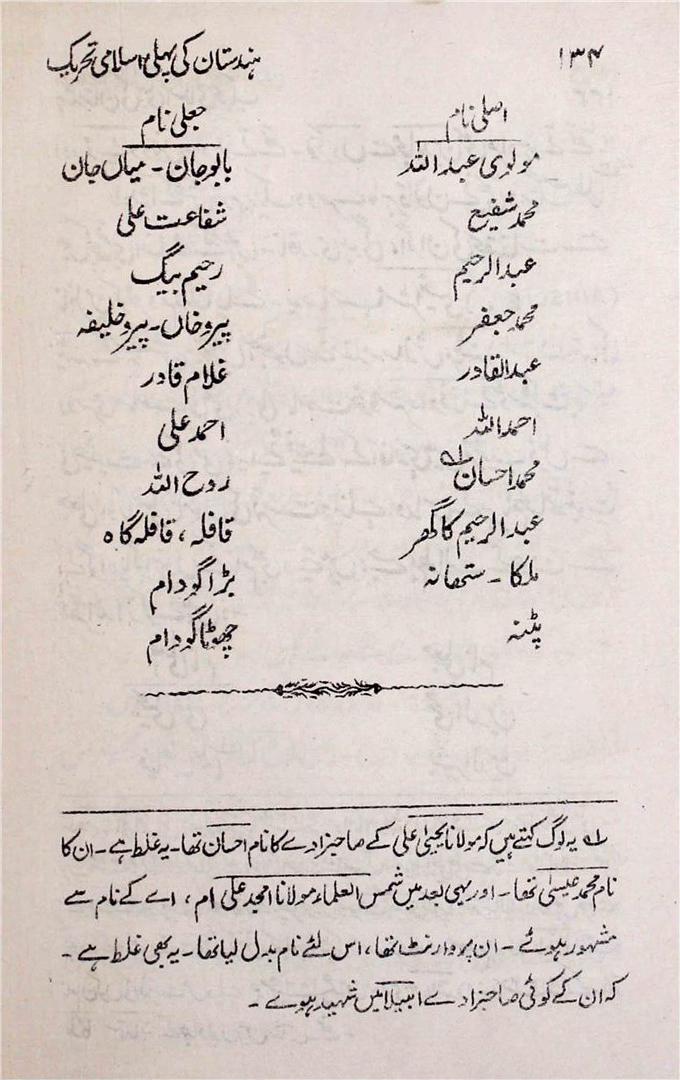 ۱۳۴ ہندستان کی پہلی اسلامی تحریک
اصلی نام جعلی نام
مولوی عبداللہ بابوجان - میاں جان
محمد شفیع شفاعت علی
عبدالرحیم رحیم بیگ
محمد جعفر پیروخاں - پیروخلیفہ
عبدالقادر غلام قادر
احمداللہ احمد علی
محمد احسان ؎۱ روح اللہ
عبدالرحیم کا گھر قافلہ ، قافلہ گاہ
ملکا - ستھانہ بڑا گودام
پٹنہ چھوٹا گودام
؎۱ یہ لوگ کہتے ہیں کہ مولانا یحییٰ علی کے صاحبزادے کا نام احسان تھا - یہ غلط ہے - ان کا
نام محمد عیسیٰ تھا - اور یہی بعد میں شمس العلماء مولانا امجد علی ام ، اے کے نام سے
مشہور ہوئے - ان پر وارنٹ تھا ، اس لئے نام بدل لیا تھا - یہ بھی غلط ہے -
کہ ان کے کوئی صاحبزادے امبیلا میں شہید ہوے -